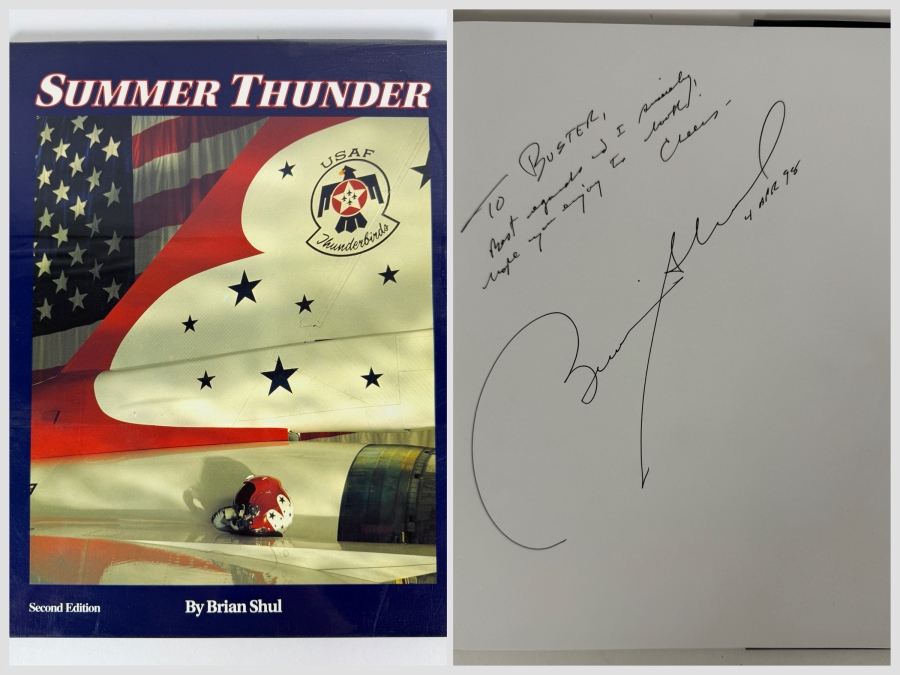 SUMMER THUNDER
USAF
Thunderbirds
Second Edition
By Brian Shul
TO BUSTER,
Best regards and I sincerely
hope you enjoy the book!
Cheers -
Brian Shul
4 APR 98